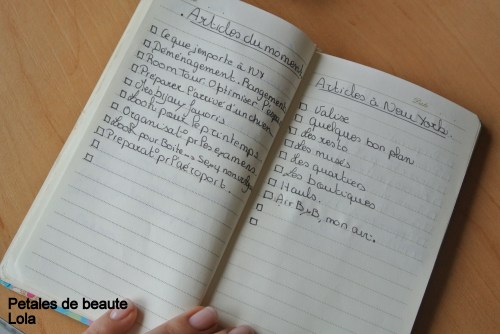 Articles du moment
Ce que j'emporte à NY
Déménagement. Rangement
Room Tour. Optimiser l'espace
Préparer l'arrivée d'un chien
Mes bijoux favoris
Look pour le printemps.
Organisat° pr les examens
Look pour Boite
Preparat° pr l'aéroport.
Articles à New York.
Valise
quelques bon plan
Les resto
Les musés
Les quartiers
Les boutiques
Hauls.
Air B&B, mon avis.
Petales de beaute
Lola